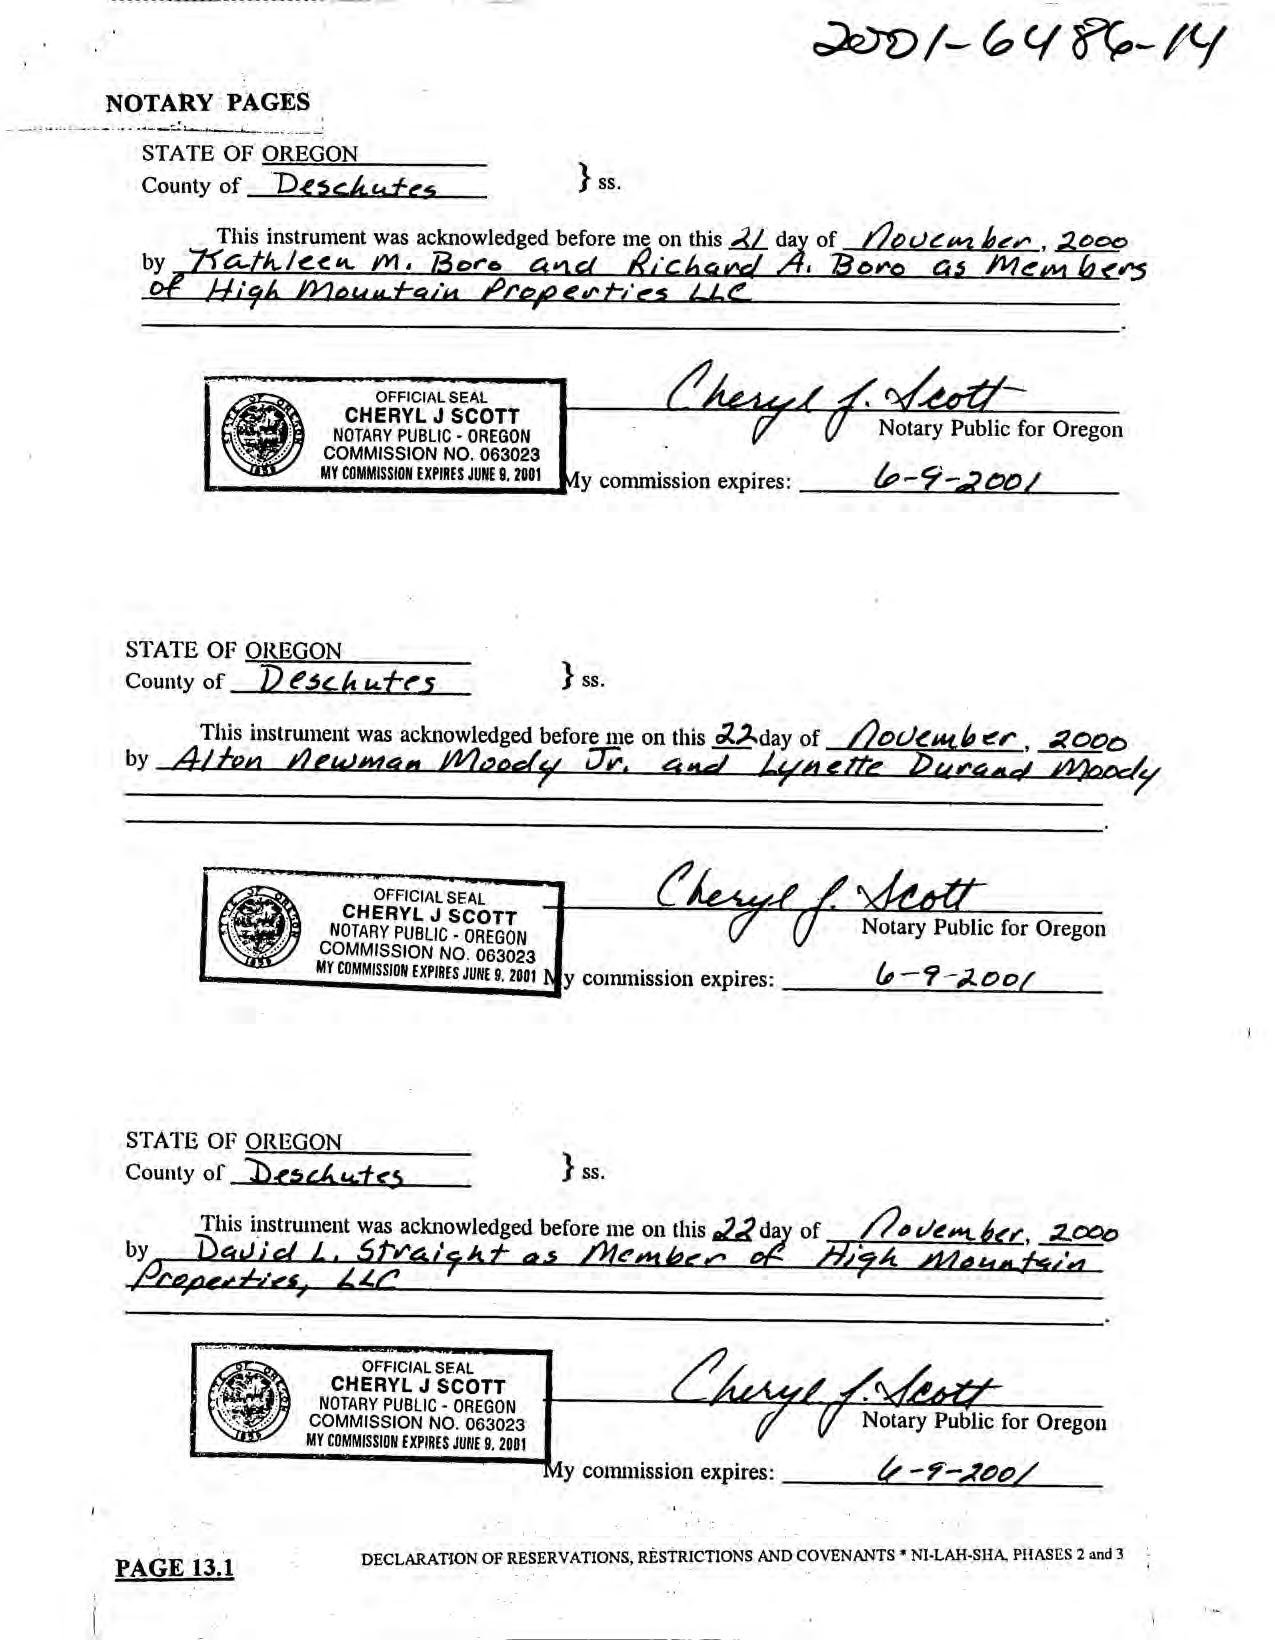 2001-6486-14
NOTARY PAGES
STATE OF OREGON
County of Deschutes } ss.
This instrument was acknowledged before me on this 21 day of November, 2000
by Kathleen M. Boro and Richard A. Boro as Members
of High Mountain Properties LLC
.
OFFICIAL SEAL
CHERYL J SCOTT
NOTARY PUBLIC - OREGON
COMMISSION NO. 063023
MY COMMISSION EXPIRES JUNE 9, 2001
STATE OF OREGON
1859
Cheryl J. Scott
Notary Public for Oregon
My commission expires: 6-9-2001
STATE OF OREGON
County of Deschutes } ss.
This instrument was acknowledged before me on this 22 day of November, 2000
by Alton Newman Moody Jr. and Lynette Durand Moody
.
OFFICIAL SEAL
CHERYL J SCOTT
NOTARY PUBLIC - OREGON
COMMISSION NO. 063023
MY COMMISSION EXPIRES JUNE 9, 2001
STATE OF OREGON
1859
Cheryl J. Scott
Notary Public for Oregon
My commission expires: 6-9-2001
STATE OF OREGON
County of Deschutes } ss.
This instrument was acknowledged before me on this 22 day of November, 2000
by David L. Straight as Member of High Mountain
Properties, LLC
.
OFFICIAL SEAL
CHERYL J SCOTT
NOTARY PUBLIC - OREGON
COMMISSION NO. 063023
MY COMMISSION EXPIRES JUNE 9, 2001
STATE OF OREGON
1859
Cheryl J. Scott
Notary Public for Oregon
My commission expires: 6-9-2001
PAGE 13.1
DECLARATION OF RESERVATIONS, RESTRICTIONS AND COVENANTS * NI-LAH-SHA, PHASES 2 and 3